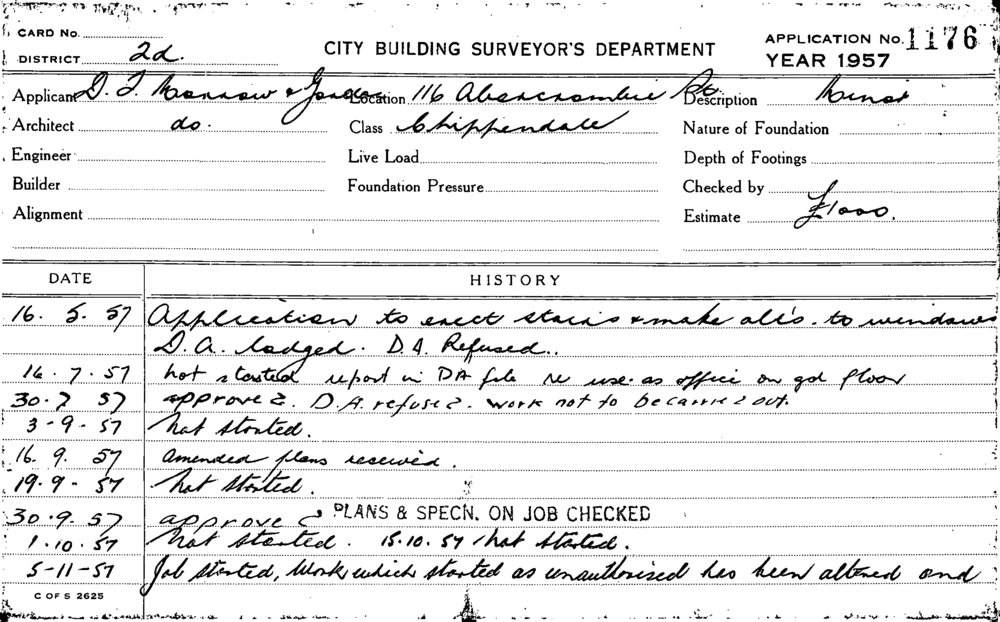 CARD No.
DISTRICT 2d.
CITY BUILDING SURVEYOR'S DEPARTMENT
APPLICATION No. 1176
YEAR 1957
Applicant D. T. Morrow & Gordon Location 116 Abercrombie St. Description Minor
Architect do. Class Chippendale Nature of Foundation
Engineer Live Load Depth of Footings
Builder Foundation Pressure Checked by
Alignment Estimate £1000.
DATE HISTORY
16. 5. 57 Application to erect stairs & make alt's. to windows
D. A. lodged. D. A. Refused..
16. 7. 57 not started report in DA file re use as office on gd floor
30. 7 57 approved. D.A. refused. work not to be carried out.
3-9-57 Not started.
16. 9. 57 amended plans received.
19. 9 - 57 Not started.
30. 9. 57 approved PLANS & SPECN. ON JOB CHECKED
1. 10. 57 Not started. 15.10.57 Not started.
5-11-57 Job started, Work which started as unauthorised has been altered and
C OF S 2625